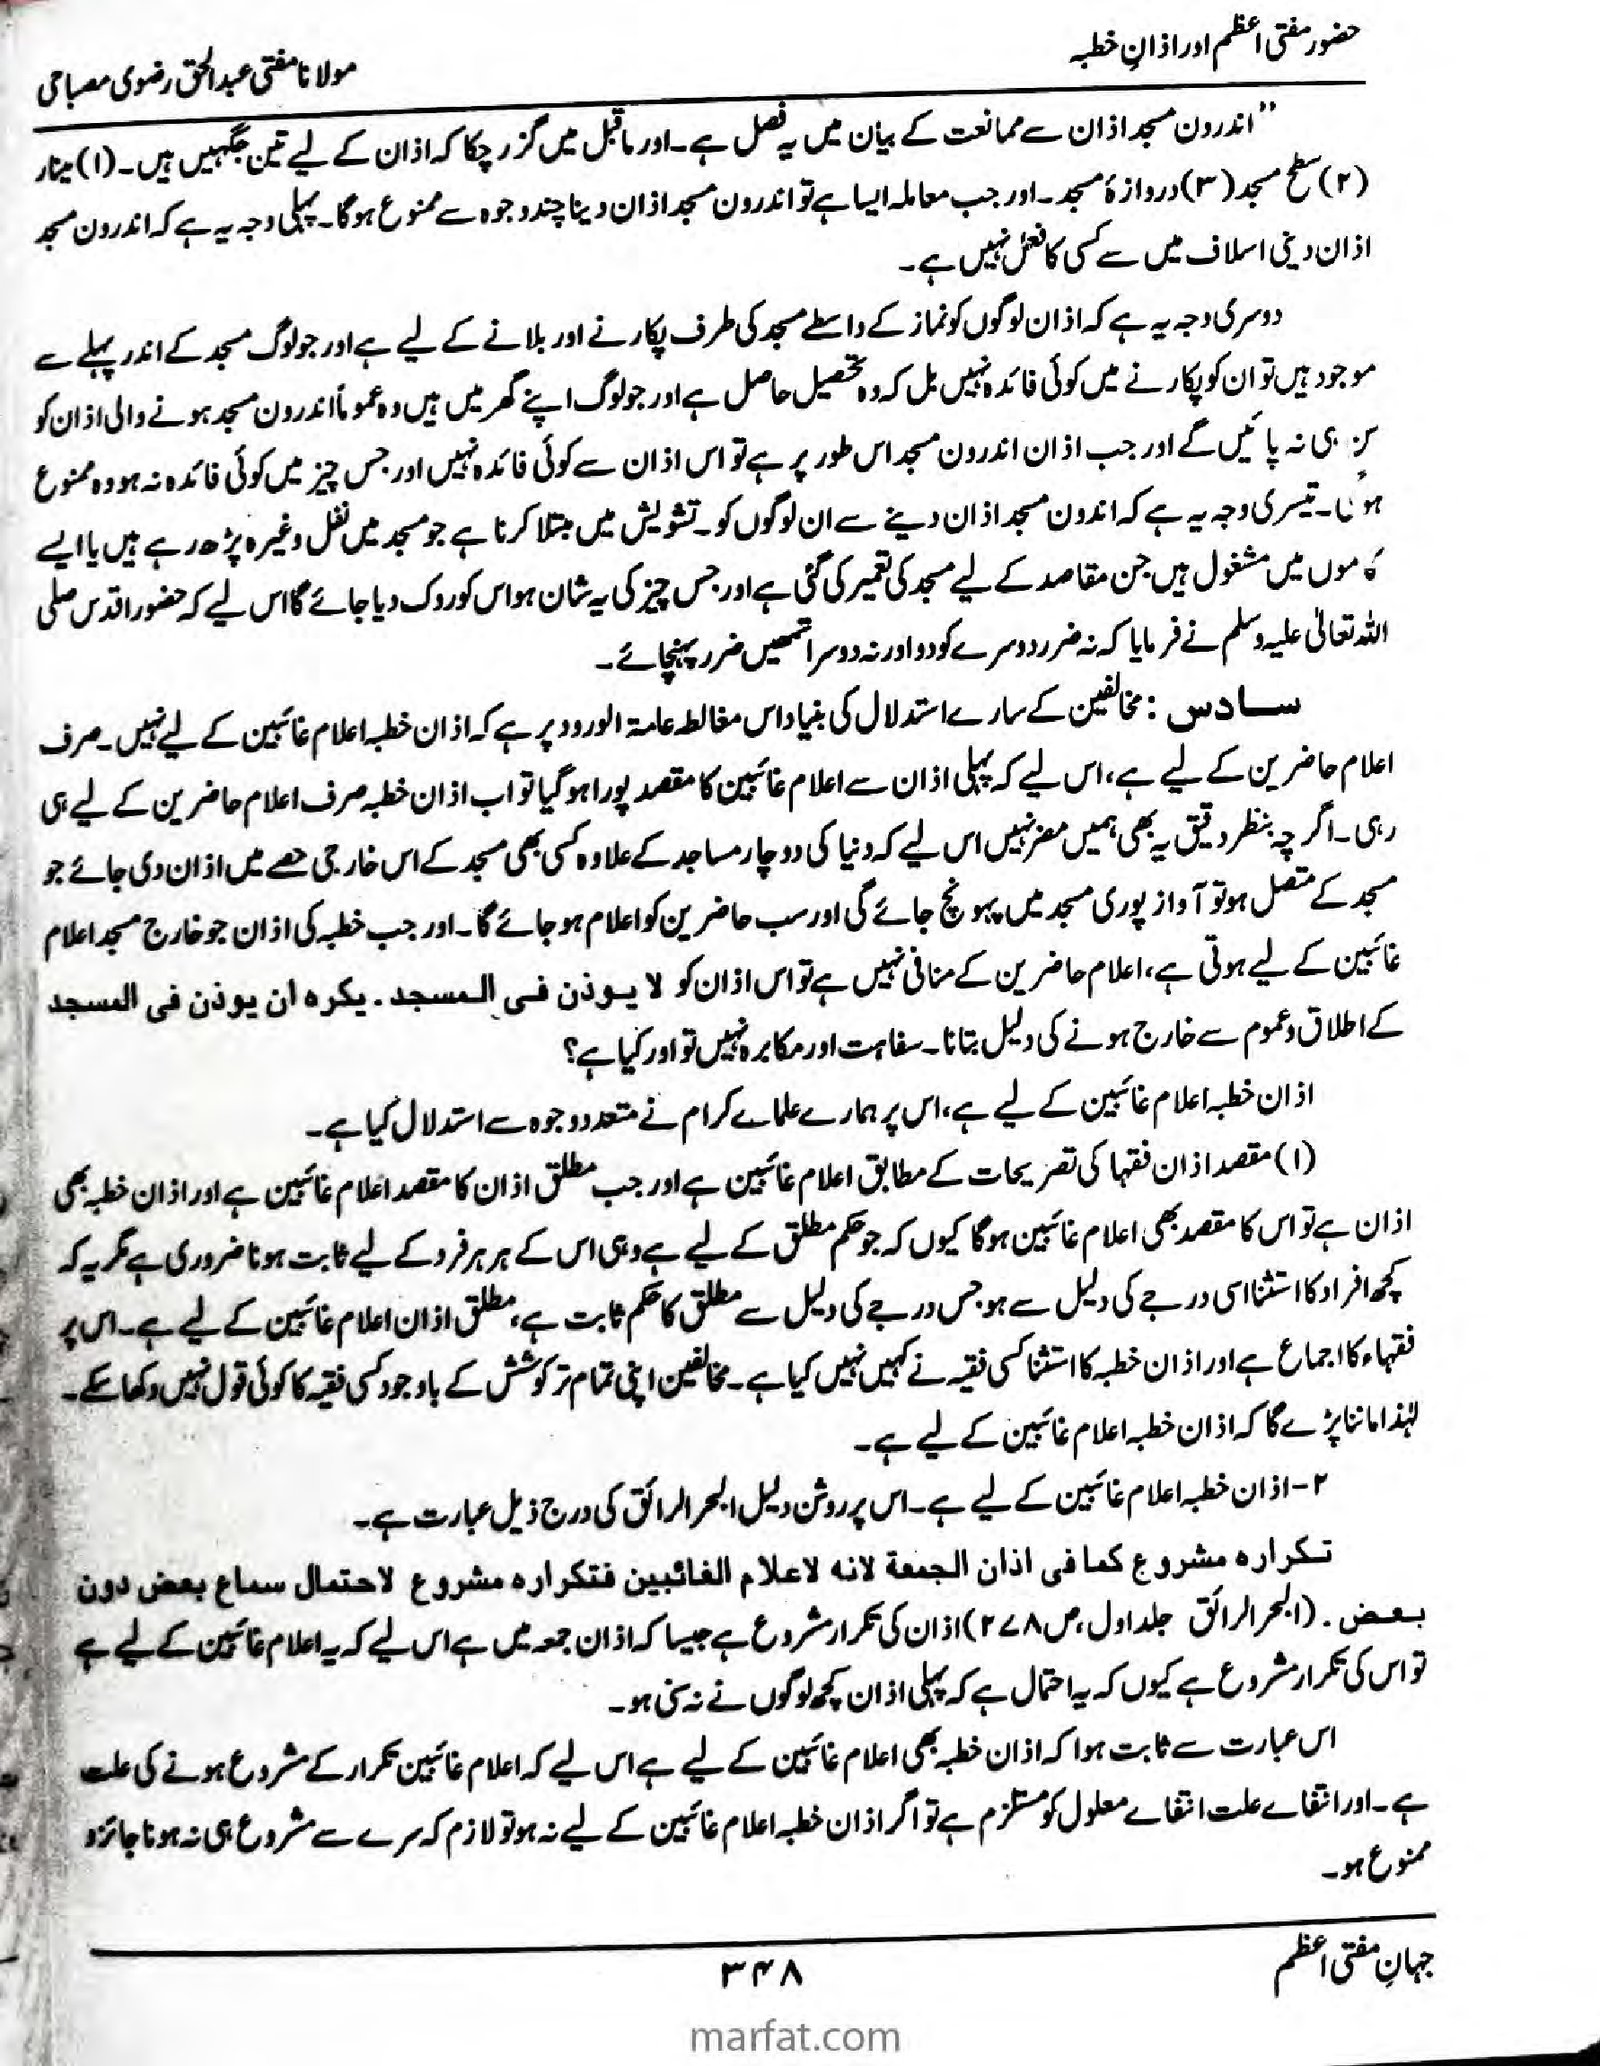 حضور مفتی اعظم اور اذانِ خطبہ
مولانا مفتی عبدالحق رضوی مصباحی
”اندرون مسجد اذان سے ممانعت کے بیان میں یہ فصل ہے۔ اور ماقبل میں گزر چکا کہ اذان کے لیے تین جگہیں ہیں۔ (۱) مینار
(۲) سطح مسجد (۳) دروازۂ مسجد۔ اور جب معاملہ ایسا ہے تو اندرون مسجد اذان دینا چند وجوہ سے ممنوع ہوگا۔ پہلی وجہ یہ ہے کہ اندرون مسجد
اذان دینی اسلاف میں سے کسی کا فعل نہیں ہے۔
دوسری وجہ یہ ہے کہ اذان لوگوں کو نماز کے واسطے مسجد کی طرف پکارنے اور بلانے کے لیے ہے اور جو لوگ مسجد کے اندر پہلے سے
موجود ہیں تو ان کو پکارنے میں کوئی فائدہ نہیں بل کہ وہ تحصیل حاصل ہے اور جو لوگ اپنے گھر میں ہیں وہ عموماً اندرون مسجد ہونے والی اذان کو
ہی نہ پائیں گے اور جب اذان اندرون مسجد اس طور پر ہے تو اس اذان سے کوئی فائدہ نہیں اور جس چیز میں کوئی فائدہ نہ ہو وہ ممنوع
ہوگی۔ تیسری وجہ یہ ہے کہ اندون مسجد اذان دینے سے ان لوگوں کو۔ تشویش میں مبتلا کرنا ہے جو مسجد میں نفل وغیرہ پڑھ رہے ہیں یا ایسے
کاموں میں مشغول ہیں جن مقاصد کے لیے مسجد کی تعمیر کی گئی ہے اور جس چیز کی یہ شان ہو اس کو روک دیا جائے گا اس لیے کہ حضور اقدس صلی
اللہ تعالیٰ علیہ وسلم نے فرمایا کہ نہ ضرر دوسرے کو دو اور نہ دوسرا تمھیں ضرر پہنچائے۔
سادس: مخالفین کے سارے استدلال کی بنیاد اس مغالطہ عامۃ الورود پر ہے کہ اذان خطبہ اعلام غائبین کے لیے نہیں۔ صرف
اعلام حاضرین کے لیے ہے، اس لیے کہ پہلی اذان سے اعلام غائبین کا مقصد پورا ہوگیا تو اب اذان خطبہ صرف اعلام حاضرین کے لیے ہی
رہی۔ اگرچہ بنظر دقیق یہ بھی ہمیں مضر نہیں اس لیے کہ دنیا کی دو چار مساجد کے علاوہ کسی بھی مسجد کے اس خارجی حصے میں اذان دی جائے جو
مسجد کے متصل ہو تو آواز پوری مسجد میں پہونچ جائے گی اور سب حاضرین کو اعلام ہو جائے گا۔ اور جب خطبہ کی اذان جو خارج مسجد اعلام
غائبین کے لیے ہوتی ہے، اعلام حاضرین کے منافی نہیں ہے تو اس اذان کو لا یوذن فی المسجد۔ یکرہ ان یوذن فی المسجد
کے اطلاق وعموم سے خارج ہونے کی دلیل بتانا۔ سفاہت اور مکابرہ نہیں تو اور کیا ہے؟
اذان خطبہ اعلام غائبین کے لیے ہے، اس پر ہمارے علماے کرام نے متعدد وجوہ سے استدلال کیا ہے۔
(۱) مقصد اذان فقہا کی تصریحات کے مطابق اعلام غائبین ہے اور جب مطلق اذان کا مقصد اعلام غائبین ہے اور اذان خطبہ بھی
اذان ہے تو اس کا مقصد بھی اعلام غائبین ہوگا کیوں کہ جو حکم مطلق کے لیے ہے وہی اس کے ہر ہر فرد کے لیے ثابت ہونا ضروری ہے مگر یہ کہ
کچھ افراد کا استثنا اسی درجے کی دلیل سے ہو جس درجے کی دلیل سے مطلق کا حکم ثابت ہے، مطلق اذان اعلام غائبین کے لیے ہے۔ اس پر
فقہاء کا اجماع ہے اور اذان خطبہ کا استثنا کسی فقیہ نے کہیں نہیں کیا ہے۔ مخالفین اپنی تمام تر کوشش کے باوجود کسی فقیہ کا کوئی قول نہیں دکھا سکے۔
لہٰذا ماننا پڑے گا کہ اذان خطبہ اعلام غائبین کے لیے ہے۔
۲- اذان خطبہ اعلام غائبین کے لیے ہے۔ اس پر روشن دلیل البحر الرائق کی درج ذیل عبارت ہے۔
تکرارہ مشروع کما فی اذان الجمعۃ لانہ لاعلام الغائبین فتکرارہ مشروع لاحتمال سماع بعض دون
بعض۔ (البحر الرائق جلد اول، ص ۲۷۸) اذان کی تکرار مشروع ہے جیسا کہ اذان جمعہ میں ہے اس لیے کہ یہ اعلام غائبین کے لیے ہے
تو اس کی تکرار مشروع ہے کیوں کہ یہ احتمال ہے کہ پہلی اذان کچھ لوگوں نے نہ سنی ہو۔
اس عبارت سے ثابت ہوا کہ اذان خطبہ بھی اعلام غائبین کے لیے ہے اس لیے کہ اعلام غائبین تکرار کے مشروع ہونے کی علت
ہے۔ اور انتفاے علت انتفاے معلول کو مستلزم ہے تو اگر اذان خطبہ اعلام غائبین کے لیے نہ ہو تو لازم کہ سرے سے مشروع ہی نہ ہو ناجائز و
ممنوع ہو۔
جہانِ مفتی اعظم
۳۴۸
marfat.com